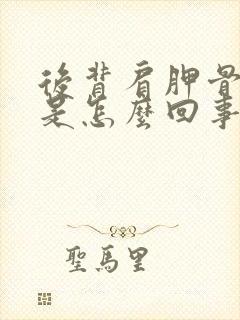 後背肩胛骨
是怎麼回事
聖馬里